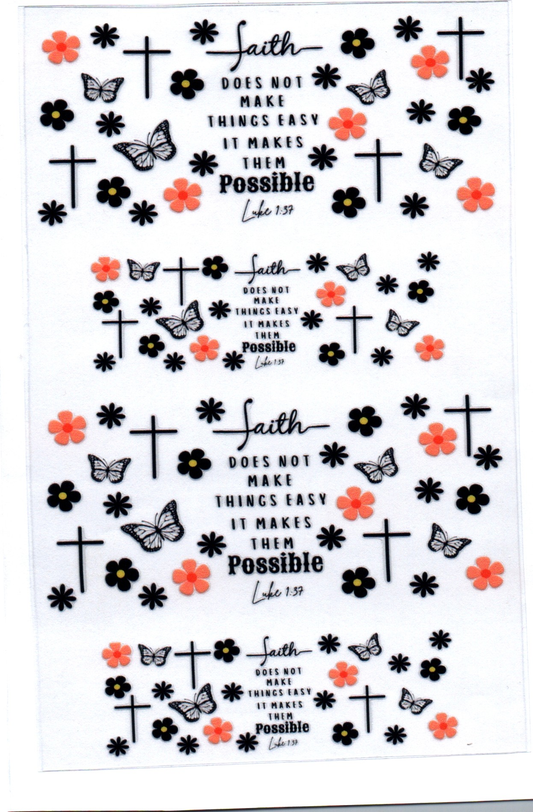 faith
DOES NOT
MAKE
THINGS EASY
IT MAKES
THEM
Possible
Luke 1:37
faith
DOES NOT
MAKE
THINGS EASY
IT MAKES
THEM
Possible
Luke 1:37
faith
DOES NOT
MAKE
THINGS EASY
IT MAKES
THEM
Possible
Luke 1:37
faith
DOES NOT
MAKE
THINGS EASY
IT MAKES
THEM
Possible
Luke 1:37